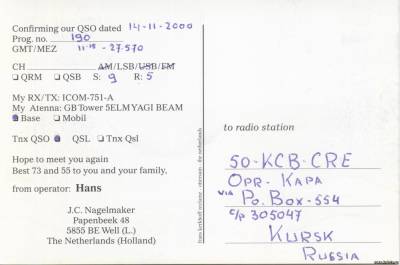 Confirming our QSO dated 14-11-2000
Prog. no. 190
GMT/MEZ 11-15 - 27.570
CH AM/LSB/USB/FM
QRM QSB S: 9 R: 5
My RX/TX: ICOM-751-A
My Atenna: GB Tower 5ELM YAGI BEAM
Base Mobil
Tnx QSO QSL Tnx Qsl
Hope to meet you again
Best 73 and 55 to you and your family,
from operator: Hans
J.C. Nagelmaker
Papenbeek 48
5855 BE Well (L.)
The Netherlands (Holland)
the netherlands
to radio station
50-KCB-CRE
OPR. KAPA
VIA P.O. BOX-554
C/P 305047
KURSK
RUSSIA